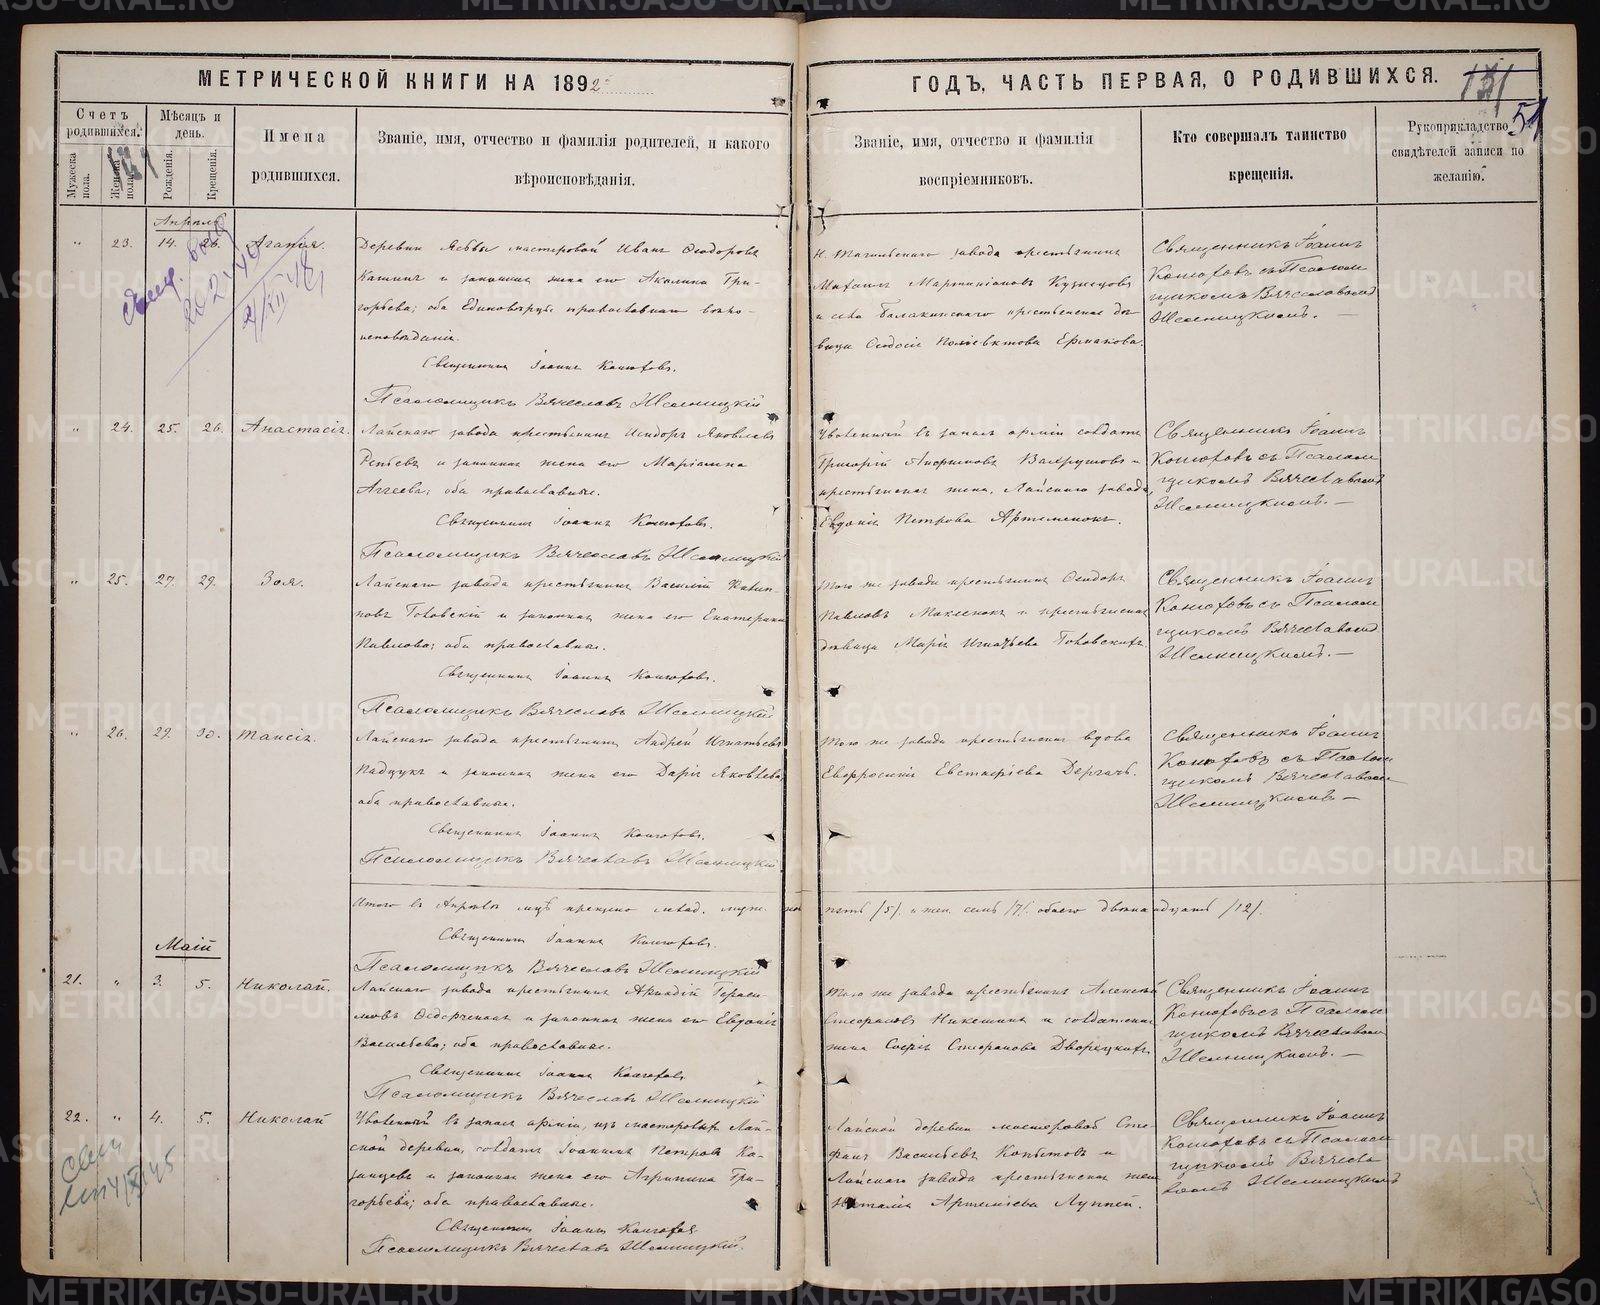 МЕТРИЧЕСКОЙ КНИГИ НА 1892
ГОДЪ, ЧАСТЬ ПЕРВАЯ, О РОДИВШИХСЯ.
51
Счетъ родившихся.
Мужеска пола.
Женска пола.
Мѣсяцъ и день.
Рожденія.
Крещенія.
Имена родившихся.
Званіе, имя, отчество и фамилія родителей, и какого вѣроисповѣданія.
Званіе, имя, отчество и фамилія воспріемниковъ.
Кто совершалъ таинство крещенія.
Рукоприкладство свидѣтелей записи по желанію.
Апрѣль
" 23. 14. 26. Агапія.
Деревни мастеровой Иванъ Ѳеодоровъ
и законная жена его Акилина Гри-
горьева; оба Единовѣрцы православнаго вѣро-
исповѣданія.
Священникъ Іоаннъ Конюховъ.
Псаломщикъ Вячеславъ
Н. Тагильскаго завода крестьянинъ
Михаилъ Мартиніановъ Кузнецовъ
и села Балакинскаго крестьянская дѣ-
вица Ѳеодосія Поліевктова Ермакова.
Священникъ Іоаннъ
Конюховъ съ Псалом
щикомъ Вячеславомъ
" 24. 25. 26. Анастасія.
Лайскаго завода крестьянинъ Исидоръ Яковлевъ
Рѣпьевъ и законная жена его Маріамна
Аггеева; оба православные.
Священникъ Іоаннъ Конюховъ.
Псаломщикъ Вячеславъ
Уволенный въ запасъ арміи солдатъ
Григорій Вахрушевъ и
крестьянская жена, Лайскаго завода,
Евдокія Петрова Артеменокъ.
Священникъ Іоаннъ
Конюховъ съ Псалом
щикомъ Вячеславомъ
" 25. 27. 29. Зоя.
Лайскаго завода крестьянинъ Василій Филип-
повъ Головскій и законная жена его Екатерина
Павлова; оба православные.
Священникъ Іоаннъ Конюховъ.
Псаломщикъ Вячеславъ
Того же завода крестьянинъ Ѳеодоръ
Павловъ Макленокъ и крестьянская
дѣвица Марія Игнатьева Головскихъ.
Священникъ Іоаннъ
Конюховъ съ Псалом
щикомъ Вячеславомъ
" 26. 29. 30. Таисія.
Лайскаго завода крестьянинъ Андрей Игнатьевъ
Падукъ и законная жена его Дарія Яковлева;
оба православные.
Священникъ Іоаннъ Конюховъ.
Псаломщикъ Вячеславъ
Того же завода крестьянская вдова
Евфросинія Евстафіева Дергачъ.
Священникъ Іоаннъ
Конюховъ съ Псалом
щикомъ Вячеславомъ
Итого въ Апрѣлѣ мцѣ крещено млад. муж. пол пять /5/. и жен. семь /7/. обоего двѣнадцать /12/.
Священникъ Іоаннъ Конюховъ.
Псаломщикъ Вячеславъ
Маій
21. " 3. 5. Николай.
Лайскаго завода крестьянинъ Аркадій Гераси-
мовъ Ѳедорченокъ и законная жена его Евдокія
Васильева; оба православные.
Священникъ Іоаннъ Конюховъ
Псаломщикъ Вячеславъ
Того же завода крестьянинъ Алексѣй
Стефановъ Никешинъ и солдатская
жена Софія Стефанова Дворецкихъ.
Священникъ Іоаннъ
Конюховъ съ Псалом
щикомъ Вячеславомъ
22. " 4. 5. Николай
Уволенный въ запасъ арміи, изъ мастеровыхъ Лай-
ской деревни, солдатъ Іоаннъ Петровъ Ка-
занцевъ и законная жена его Агрипина Гри-
горьева; оба православные.
Священникъ Іоаннъ Конюховъ
Псаломщикъ Вячеславъ
Лайской деревни мастеровой Сте-
фанъ Васильевъ Копытовъ и
Лайскаго завода крестьянская жен
Наталія Артеміева Луппей.
Священникъ Іоаннъ
Конюховъ съ Псалом
щикомъ Вячесла
вомъ
METRIKI.GASO-URAL.RU